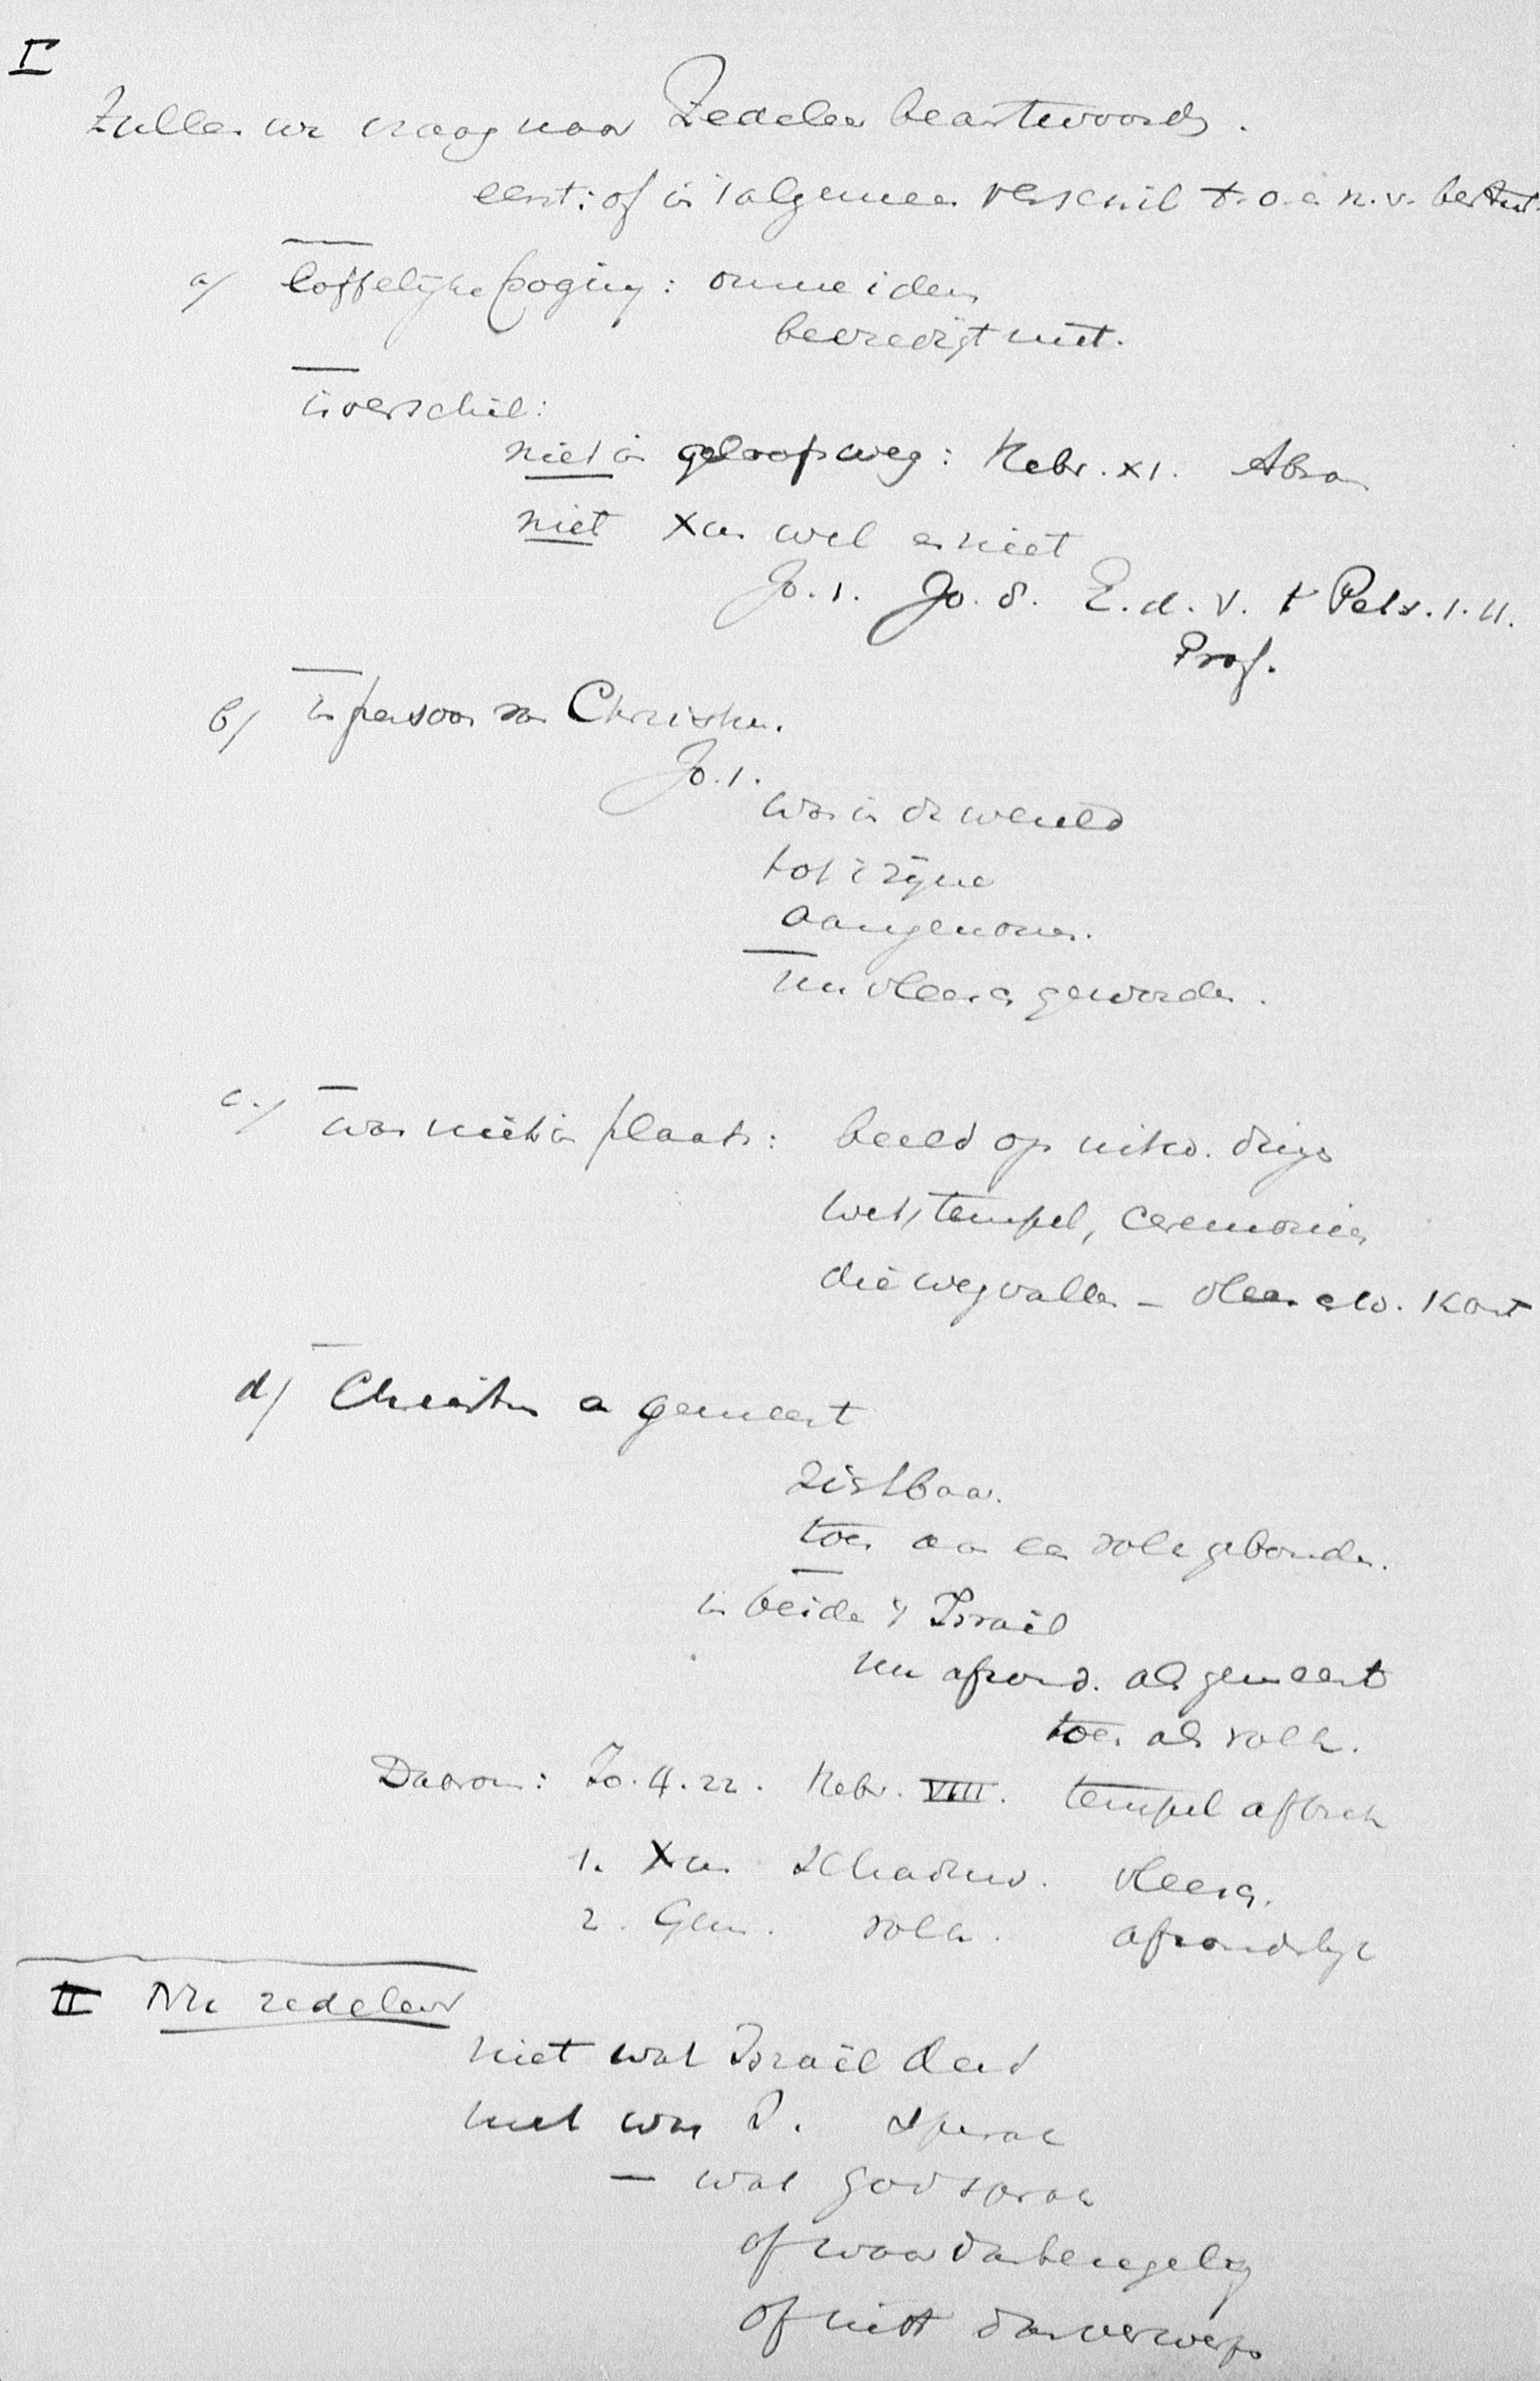 I
Zullen we vraag naar Zedeleer beantwoorden.
eerst: of in 't algemeen verschil t.o. e n.v. bestaat.
a/ loffelijke poging: ommeiden
bevredigt niet.
is verschil:
niet in geloofsweg: Hebr. XI. Abra
niet Xus wel en niet
Jo. 1. Jo. 8. E. d. V. 1 Petr. 1. 11.
Prof.
b/ In persoon van Christus.
Jo. 1.
was in de wereld
tot 't zijne
aangenomen.
nu vleesch geworden.
c./ was niet in plaats: beeld op uitw. dings
wet, tempel, ceremoniën
die wegvallen - vleesch w. komt
d/ Christus en gemeente
zichtbaar.
toen aan een volk gebonden.
in beide is Israël
nu afzond. als gemeente
toen als volk.
Daarom: Jo. 4. 22. Hebr. VIII. tempel afbrek
1. Xus schaduw. vleesch.
2. Gem. volk. afzonderlijk
II Nu zedeleer
niet wat Israël deed
niet wat I. sprak
— wat God sprak
of waar dan bengelig
of niet dan verwerp